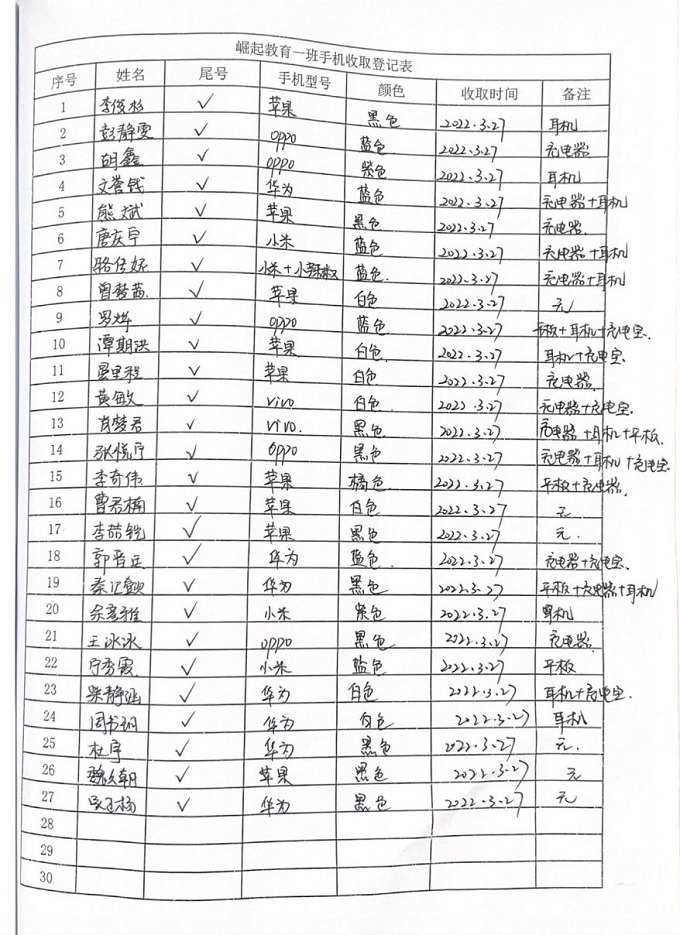 崛起教育一班手机收取登记表
序号 姓名 尾号 手机型号 颜色 收取时间 备注
1 李俊杉 ✓ 苹果 黑色 2022.3.27 耳机
2 彭静雯 ✓ oppo 蓝色 2022.3.27 充电器
3 胡鑫 ✓ oppo 紫色 2022.3.27 耳机
4 文誉钱 ✓ 华为 蓝色 2022.3.27 充电器+耳机
5 熊斌 ✓ 苹果 黑色 2022.3.27 充电器
6 唐庆宇 ✓ 小米 蓝色 2022.3.27 充电器+耳机
7 骆佳妮 ✓ 小米+小辣椒 蓝色 2022.3.27 充电器+耳机
8 曾梦茜 ✓ 苹果 白色 2022.3.27 无
9 罗烨 ✓ oppo 蓝色 2022.3.27 平板+耳机+充电宝
10 谭期洪 ✓ 苹果 白色 2022.3.27 耳机+充电宝
11 晏里程 ✓ 苹果 白色 2022.3.27 充电器
12 黄敏 ✓ vivo 白色 2022.3.27 充电器+充电宝
13 肖梦君 ✓ vivo. 黑色 2022.3.27 充电器+耳机+平板
14 张悦宁 ✓ oppo 黑色 2022.3.27 充电器+耳机+充电宝
15 李奇伟 ✓ 苹果 橘色 2022.3.27 平板+充电器
16 曹君楠 ✓ 苹果 白色 2022.3.27 无
17 李喆锐 ✓ 苹果 黑色 2022.3.27 无.
18 郭晋廷 ✓ 华为 蓝色 2022.3.27 充电器+充电宝
19 秦 ✓ 华为 黑色 2022.3.27 平板+充电器+耳机
20 余雅 ✓ 小米 紫色 2022.3.27 耳机
21 王冰冰 ✓ oppo 黑色 2022.3.27 充电器
22 宁秀霞 ✓ 小米 蓝色 2022.3.27 平板
23 梁静涵 ✓ 华为 白色 2022.3.27 耳机+充电宝
24 周书玥 ✓ 华为 白色 2022.3.27 耳机
25 杜宇 ✓ 华为 黑色 2022.3.27 无.
26 魏朝 ✓ 苹果 黑色 2022.3.27 无
27 吴杨 ✓ 华为 黑色 2022.3.27 无
28
29
30